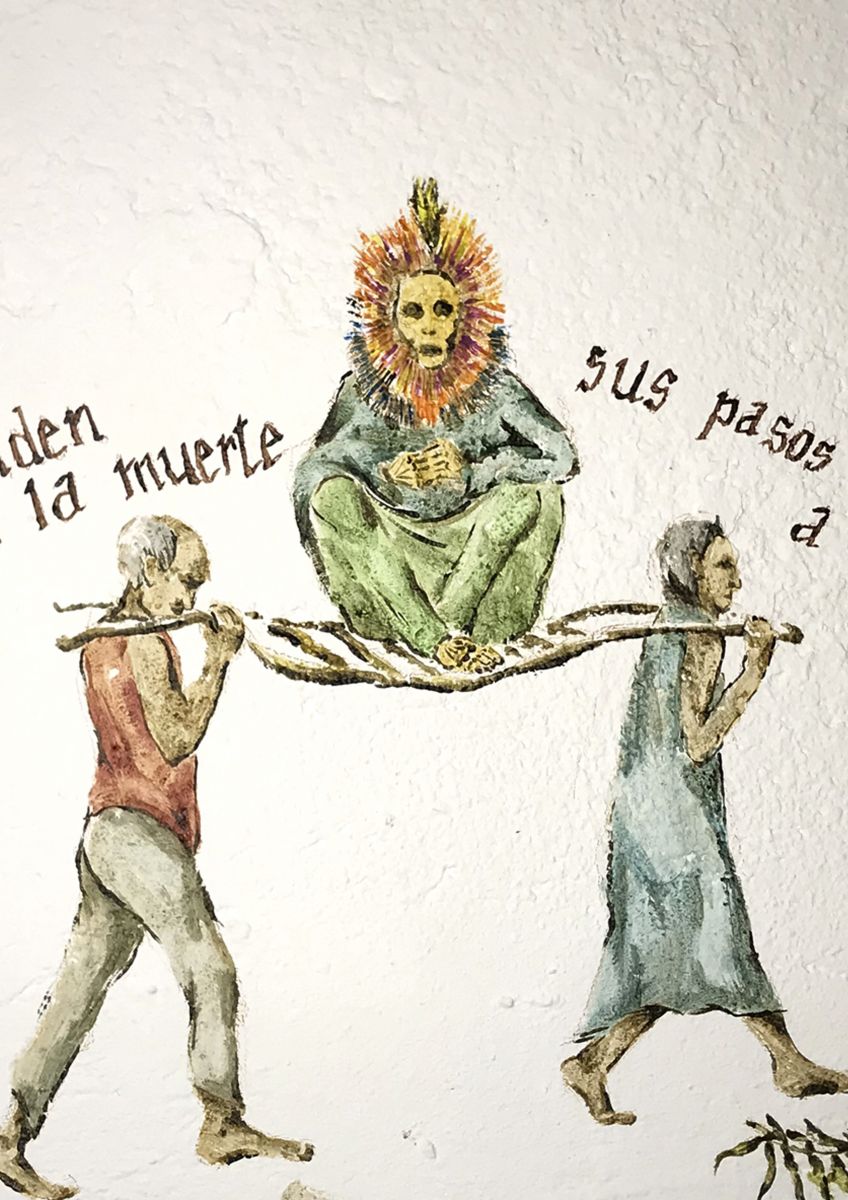 la muerte
sus pasos
a